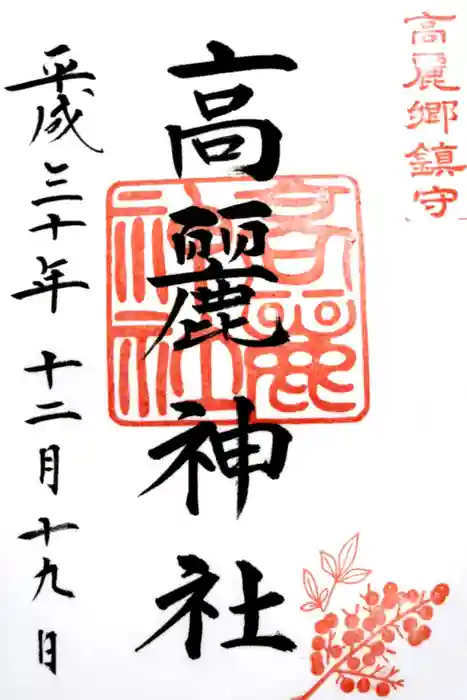 高麗郷鎮守
高麗神社
高麗神社
平成三十年十二月十九日